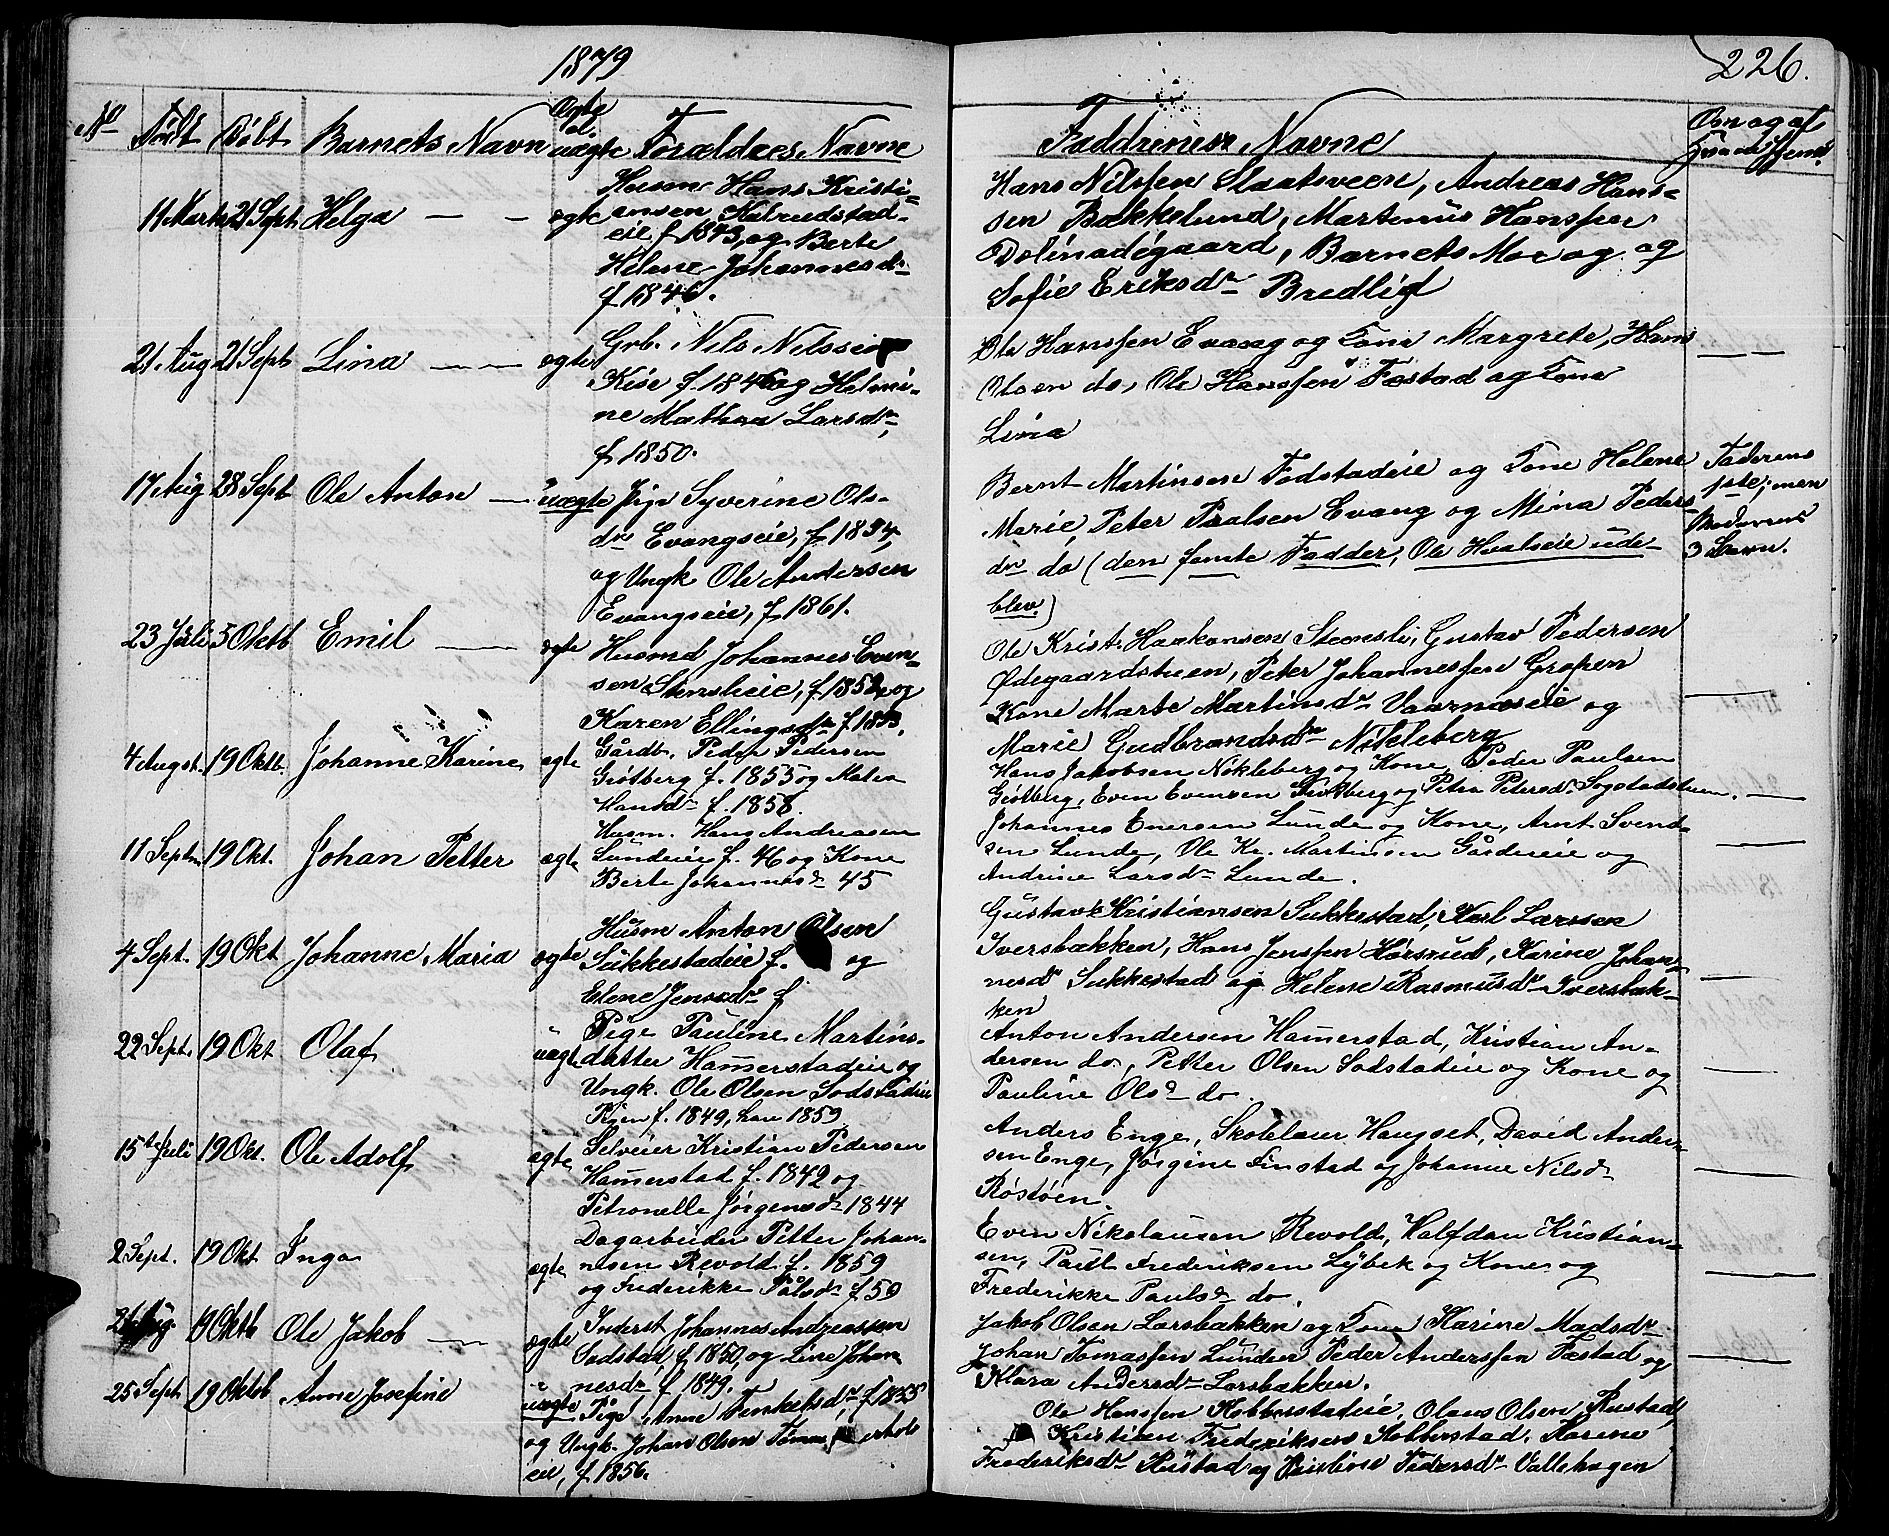 1879
226.
No Født Døbt Barnets Navn Ægte el. uægte Forældres Navne
Faddrenes Navne
Om og af
11 Marts 21 Sept. Helga — — ægte Husm. Hans Kristi-
ansen Kalrudstad-
eie f. 1843, og Berte
Helene Johannesd.
f 1846.
Hans Nilssen Slaatsveen, Andreas Hans-
sen Bakkelund, Martenius Hanssen
Dolinødegaard, Barnets Mor og og
Sofie Eriksdr Bredlig
21 Aug 21 Sept Lina — — ægte Grb. Nils Nilssen
Kise f. 1846 og Helmi-
ne Mathea Larsdr,
f 1850.
Ole Hanssen Evang og Kone Margrete, Hans —
Olsen do, Ole Hanssen Fæstad og Kone
Lina
17 Aug 28 Sept Ole Anton — uægte Pige Syverine Ols-
dr Evangseie, f 1834,
og Ungk Ole Andersen
Evangseie, f 1861.
Bernt Martinsen Fodstadeie og Kone Helene
Marie, Peter Paalsen Evang og Mina Peders
dr do (den femte Fadder, Ole Hvalseie ude-
blev.)
Faderens
1ste; men
Moderens
3 Barn.
23 Juli 5 Oktb Emil — ægte Husmd Johannes Even-
sen Stensheie, f 1852, og
Karen Ellingsdr f 1853.
Ole Krist. Haakonsen Steensli, Gustav Pedersen
Ødegaardstuen, Peter Johannessen Gropen
Kone Marte Martinsdr Vaarnæseie og
Marie Gudbrandsdr Nikleberg
4 August. 19 Oktb. Johanne Karine ægte Gårdb. Peder Pedersen
Grøtberg f. 1855 og Maten
Hansdr f. 1858.
Hans Jakobsen Nøkleberg og Kone, Peder Paulsen
Grøtberg, Even Evensen Grøtberg og Petra Petersdr Sogstadstuen. —
11 Septm 19 Okt. Johan Petter ægte Husm. Hans Andreasen
Lundeeie f. 46 og Kone
Berte Johannesdr 45
Johannes Enersen Lunde og Kone, Arnt Svend-
sen Lunde, Ole Kr. Martinsen Gårdereie og
Andrine Larsdr Lunde.
4 Sept. 19 Okt Johanne Maria ægte Husm Anton Olsen
Sukkestadeie f. og
Elene Jensdr f
Gustav Kristiansen Sukkestad, Karl Larsen
Iversbakken, Hans Jenssen Hørsrud, Karine Johan-
nesdr Sukkestad og Helene Rasmusdr Iversbak-
ken
22 Sept. 19 Okt Olaf uægte Pige Pauline Martins-
datter Hamerstadeie og
Ungk. Ole Olsen Sodstadeie
Pigen f. 1849, han 1859
Anton Andersen Hamerstad, Kristian An-
dersen do, Petter Olsen Sodstadeie og Kone og
Pauline Olsdr do.
15de Juli 19 Okt. Ole Adolf ægte Selveier Kristian Pedersen
Hamerstad f. 1842 og
Petronelle Jørgensdr 1844
Anders Enge, Skolelærer Haugset, David Ander-
sen Enge, Jørgine Finstad og Johanne Nilsdr
Røstøen.
2 Sept. 19 Okt Inga ægte Dagarbeider Petter Johan-
nesen Revold f. 1859
og Frederikke Pålsdr f 59
Even Nikolausen Revold, Halfdan Kristian-
sen, Paul Frederiksen Lybek og Kone og
Frederikke Paulsdr do.
Aug. 19 Oktb Ole Jakob — ægte Inderst Johannes Andreassen
Sodstad, f 1850, og Line Johan
nesdr f 1849.
Jakob Olsen Larsbakken og Kone Karine Madsdr
Johan Tomassen Lunden Peder Anderssen Fæstad og
Klara Andersdr Larsbakken.
25 Sept 19 Oktob Anne Josefine uægte Pige Anne Tinkelsdr, f 1855
og Ungk. Johan Olsen
eie, f 1856.
Ole Hanssen Kobberstadeie, Olaus Olsen Rustad,
Kristian Frederiksen Kobberstad, Karine
Frederiksdr Rustad og Pauline Pedersdr Vallehagen